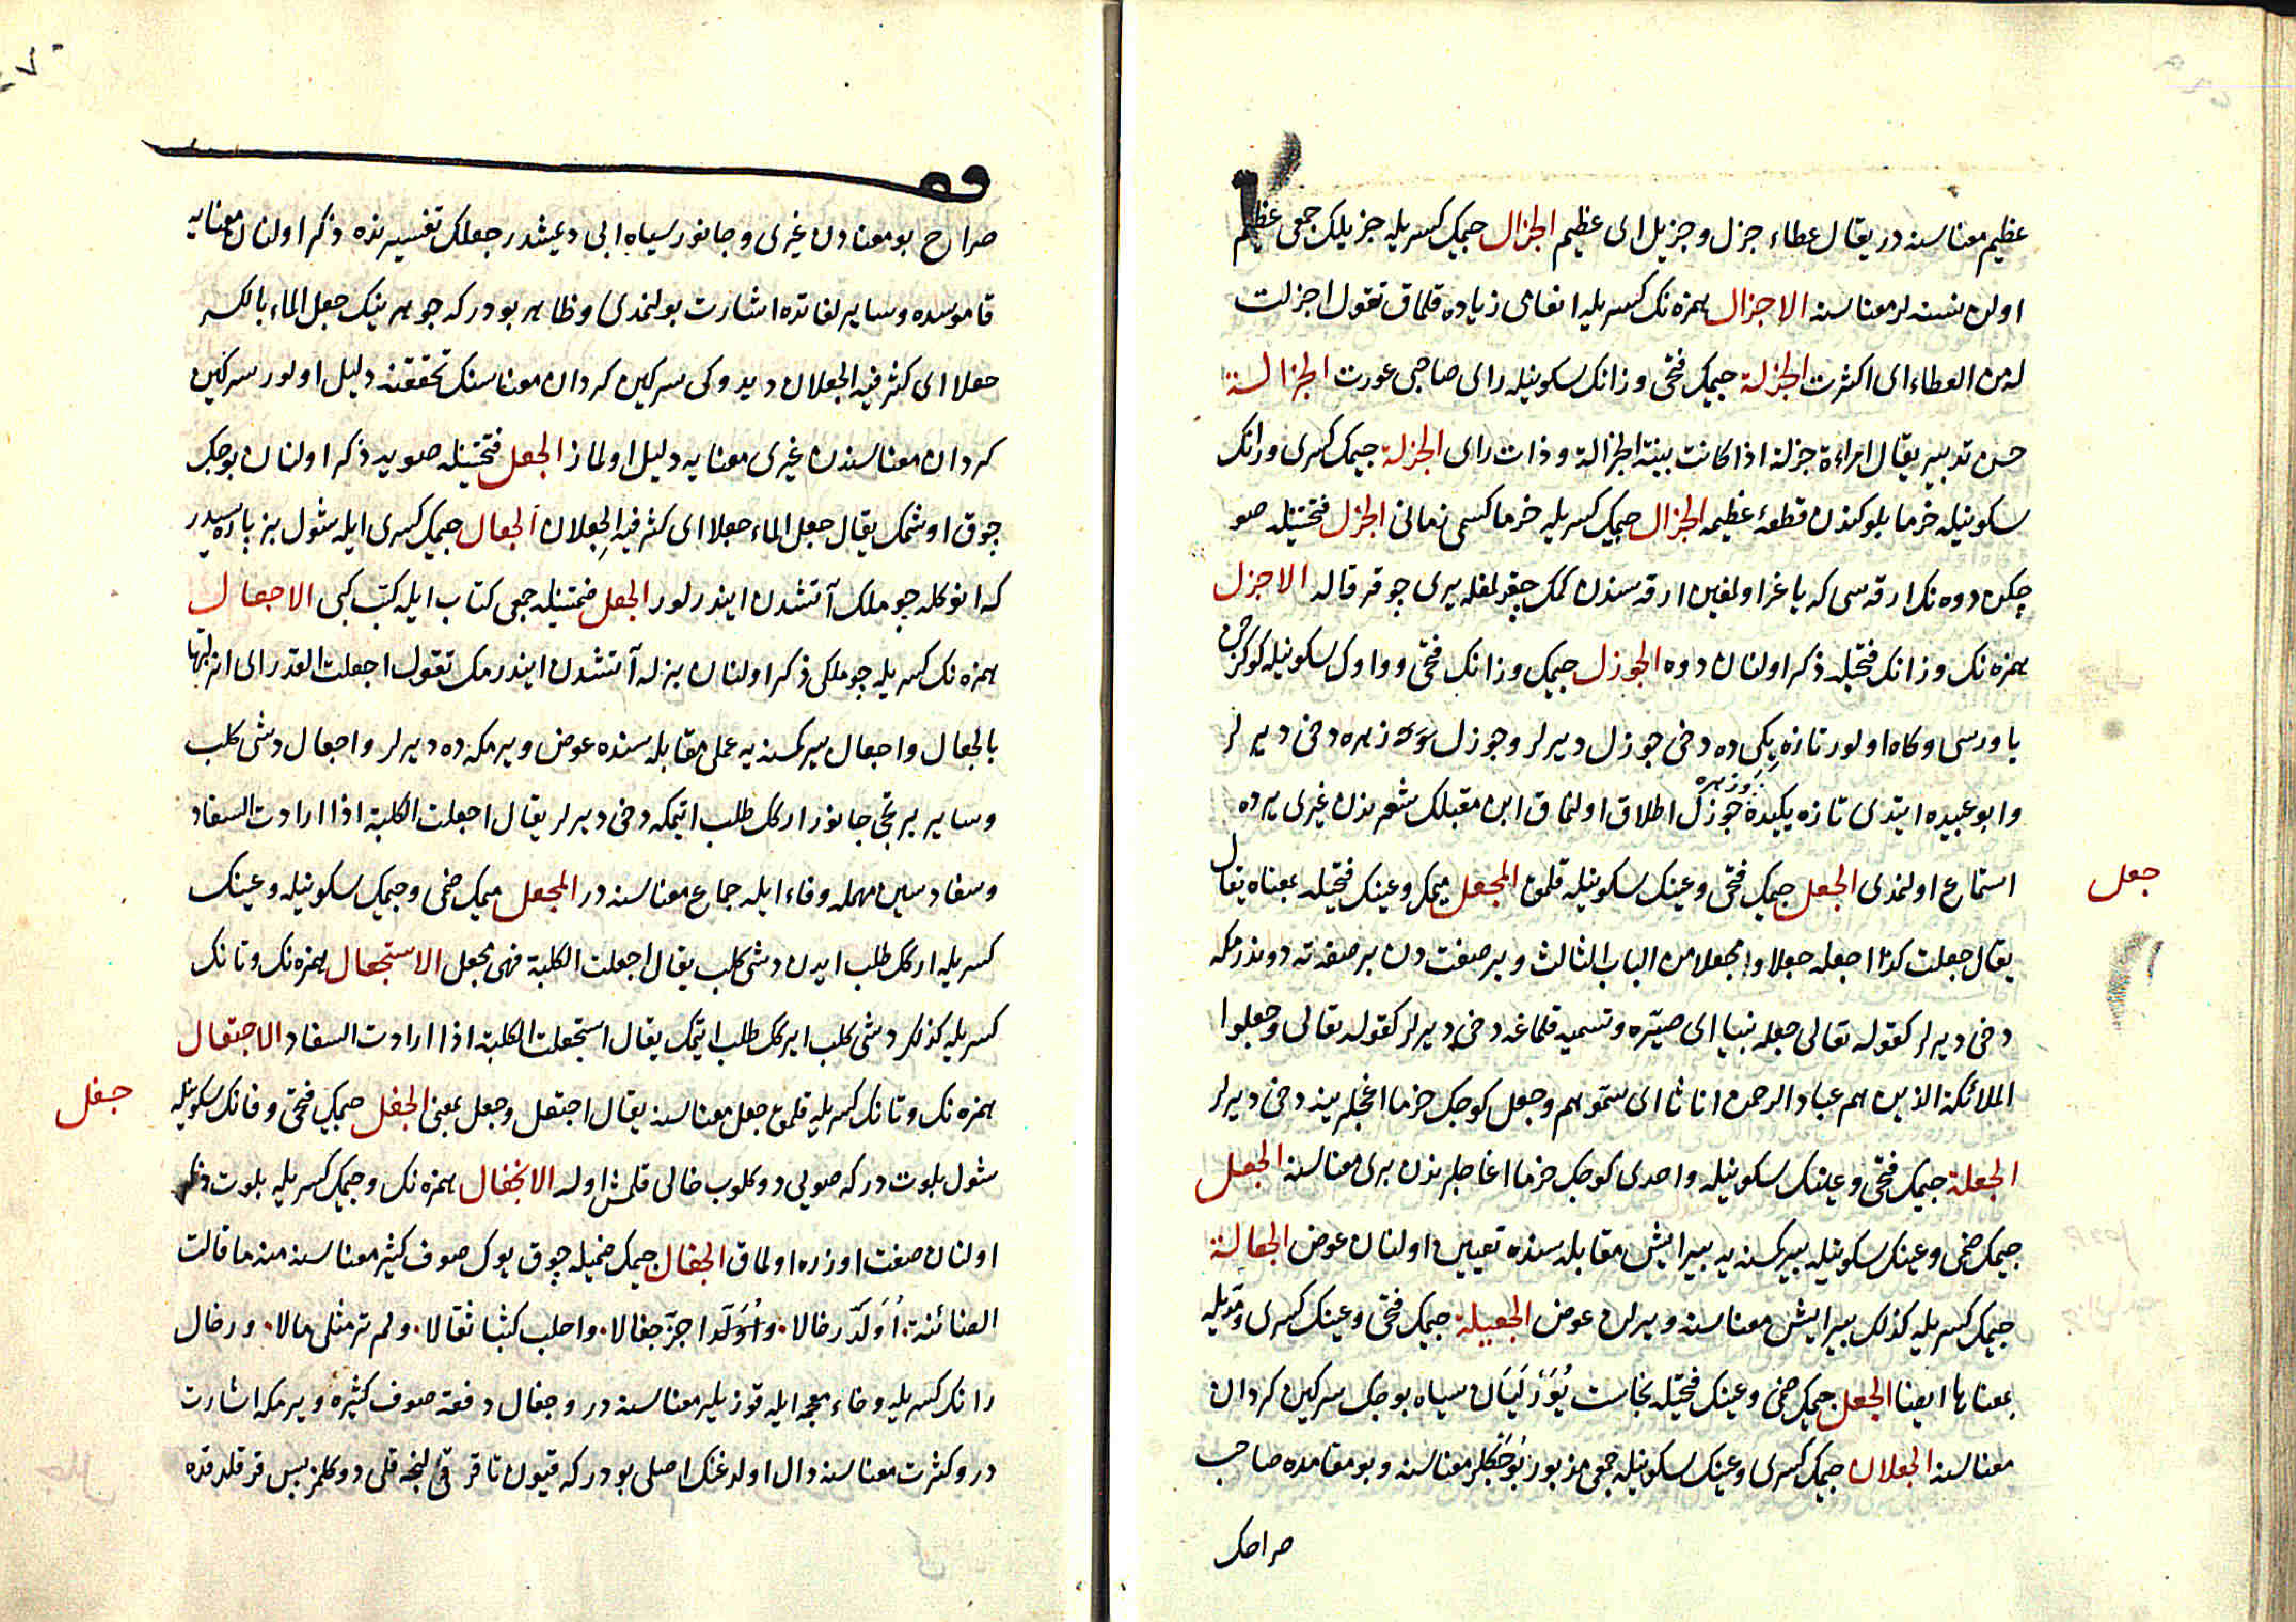 عظيم معناسنه در يقال عطاء جزل وجزيل اى عظيم الجزال جيمك كسريله جزيلك جمعى عظيم
اولن نسنه لر معناسنه الاجزال همزه نك كسريله انعامى زياده قلماق تقول اجزلت
له من العطاء اى اكثرت الجزلة جيمك فتحى و زانك سكونيله راى صاحبى عورت الجزالة
حسن تدبير يقال امراءة جزلة اذا كانت بينة الجزالة وذات راى الجزلة جيمك كسرى وزانك
سكونيله خرما بلوكندن قطعهٔ عظيمه الجزال جيمك كسريله خرما كسمى زمانى الجزل فتحتينله صو
چكن دوه نك ارقه سى كه ياغر اولمغين ارقه سندن كمك چقمغله يرى چوقر قاله الاجزل
همزه نك وزانك فتحيله ذكر اولنان دوه الجوزل جيمك وزانك فتحى و واوك سكونيله كوكرجن
ياورسى وكاه اولور تازه يكى ده دخى جوزل ديرلر وجوزل زهره دخى ديرلر
وابو عبيده ايتدى تازه يكيده جوزل اطلاق اولنماق ابن مقبلك شعرندن غيرى يرده
استماع اولنمدى الجعل جيمك فتحى وعينك سكونيله قلمق المجعل ميمك وعينك فتحيله بمعناه يقال
جعل
يقال جعلت كذا اجعله جعلا ومجعلا من الباب الثالث وبر صفت دن بر صفته دوندرمكه
دخى ديرلر كقوله تعالى جعله نبيا اى صيّره وتسميه قلماغه دخى ديرلر كقوله تعالى وجعلوا
الملائكة الذين هم عباد الرحمن اناثا اى سمّوهم وجعل كوجك خرما اغجلرينه دخى ديرلر
الجعلة جيمك فتحى وعينك سكونيله واحدى كوجك خرما اغاجلرندن برى معناسنه الجعل
جيمك ضمى وعينك سكونيله بير كمسنه يه بير ايش مقابله سنده تعيين اولنان عوض الجعالة
جيمك كسريله كذلك بير ايش معناسنه ويرلن عوض الجعيلة جيمك فتحى وعينك كسرى ومديله
بمعناها ايضا الجعل جيمك ضمى وعينك فتحيله نجاست سياه بوجك سركين كردان
معناسنه الجعلان جيمك كسرى وعينك سكونيله جمعى مزبور بوجكلر معناسنه وبو مقامده صاحب
صراحك
صراح بو معنادن غيرى وجانور سياه ابى ديمشدر جعلك تفسيرنده ذكر اولنان معنايه
قاموسده وساير لغاتده اشارت بولنمدى وظاهر بودر كه جوهرينك جعل الماء بالكسر
جعلا اى كثر فيه الجعلان ديدوكى سركين كردان معناسنك تحققنه دليل اولور سركين
كردان معناسندن غيرى معنايه دليل اولماز الجعل فتحتينله صويه ذكر اولنان بوجك
چوق اوشمك يقال جعل الماء جعلا اى كثر فيه الجعلان الجعال جيمك كسرى ايله شول بز پاره سيدر
كه انوكله چوملك آتشدن ايندرلور الجعل ضمتينله جمعى كتاب ايله كتب كبى الاجعال
همزه نك كسريله چوملكى ذكر اولنان بزله آتشدن ايندرمك تقول اجعلت القدر اى انزلتها
بالجعال واجعال بير كمسنه يه عمل مقابله سنده عوض ويرمكه ده ديرلر واجعال دشى كلب
وساير يرتجى جانور ارلك طلب ايتمكه دخى ديرلر يقال اجعلت الكلبة اذا ارادت السفاد
وسفاد سين مهمله وفاء ايله جماع معناسنه در المجعل ميمك ضمى وجيمك سكونيله وعينك
كسريله ارلك طلب ايدن دشى كلب يقال اجعلت الكلبة فهى مجعل الاستجعال همزه نك وتانك
كسريله كذلك دشى كلب ايركك طلب ايتمك يقال استجعلت الكلبة اذا ارادت السفاد الاجتعال
همزه نك وتانك كسريله قلمق جعل معناسنه يقال اجتعل وجعل بمعنى الجفل جيمك فتحى وفانك سكونيله
جفل
شول بلوت در كه صويى دوكلوب خالى قلمش اوله الانجفال همزه نك وجيمك كسريله بلوت ذكر
اولنان صفت اوزره اولماق الجفال جيمك ضميله چوق يوك صوف كثير معناسنه منه ما قالت
الضائنة اُوَلَّد رخالا واجزّ جفالا واحلب كثبا ثقالا ولم تر مثلى مالا ورخال
رانك كسريله وخاء معجمه ايله قوزيلر معناسنه در وجفال دفعة صوف كثيره ويرمكه اشارت
در وكثرت معناسنه دال اولدغنك اصلى بودر كه قيون تا قرقلنجه قلى دوكلمز پس قرقلدقده